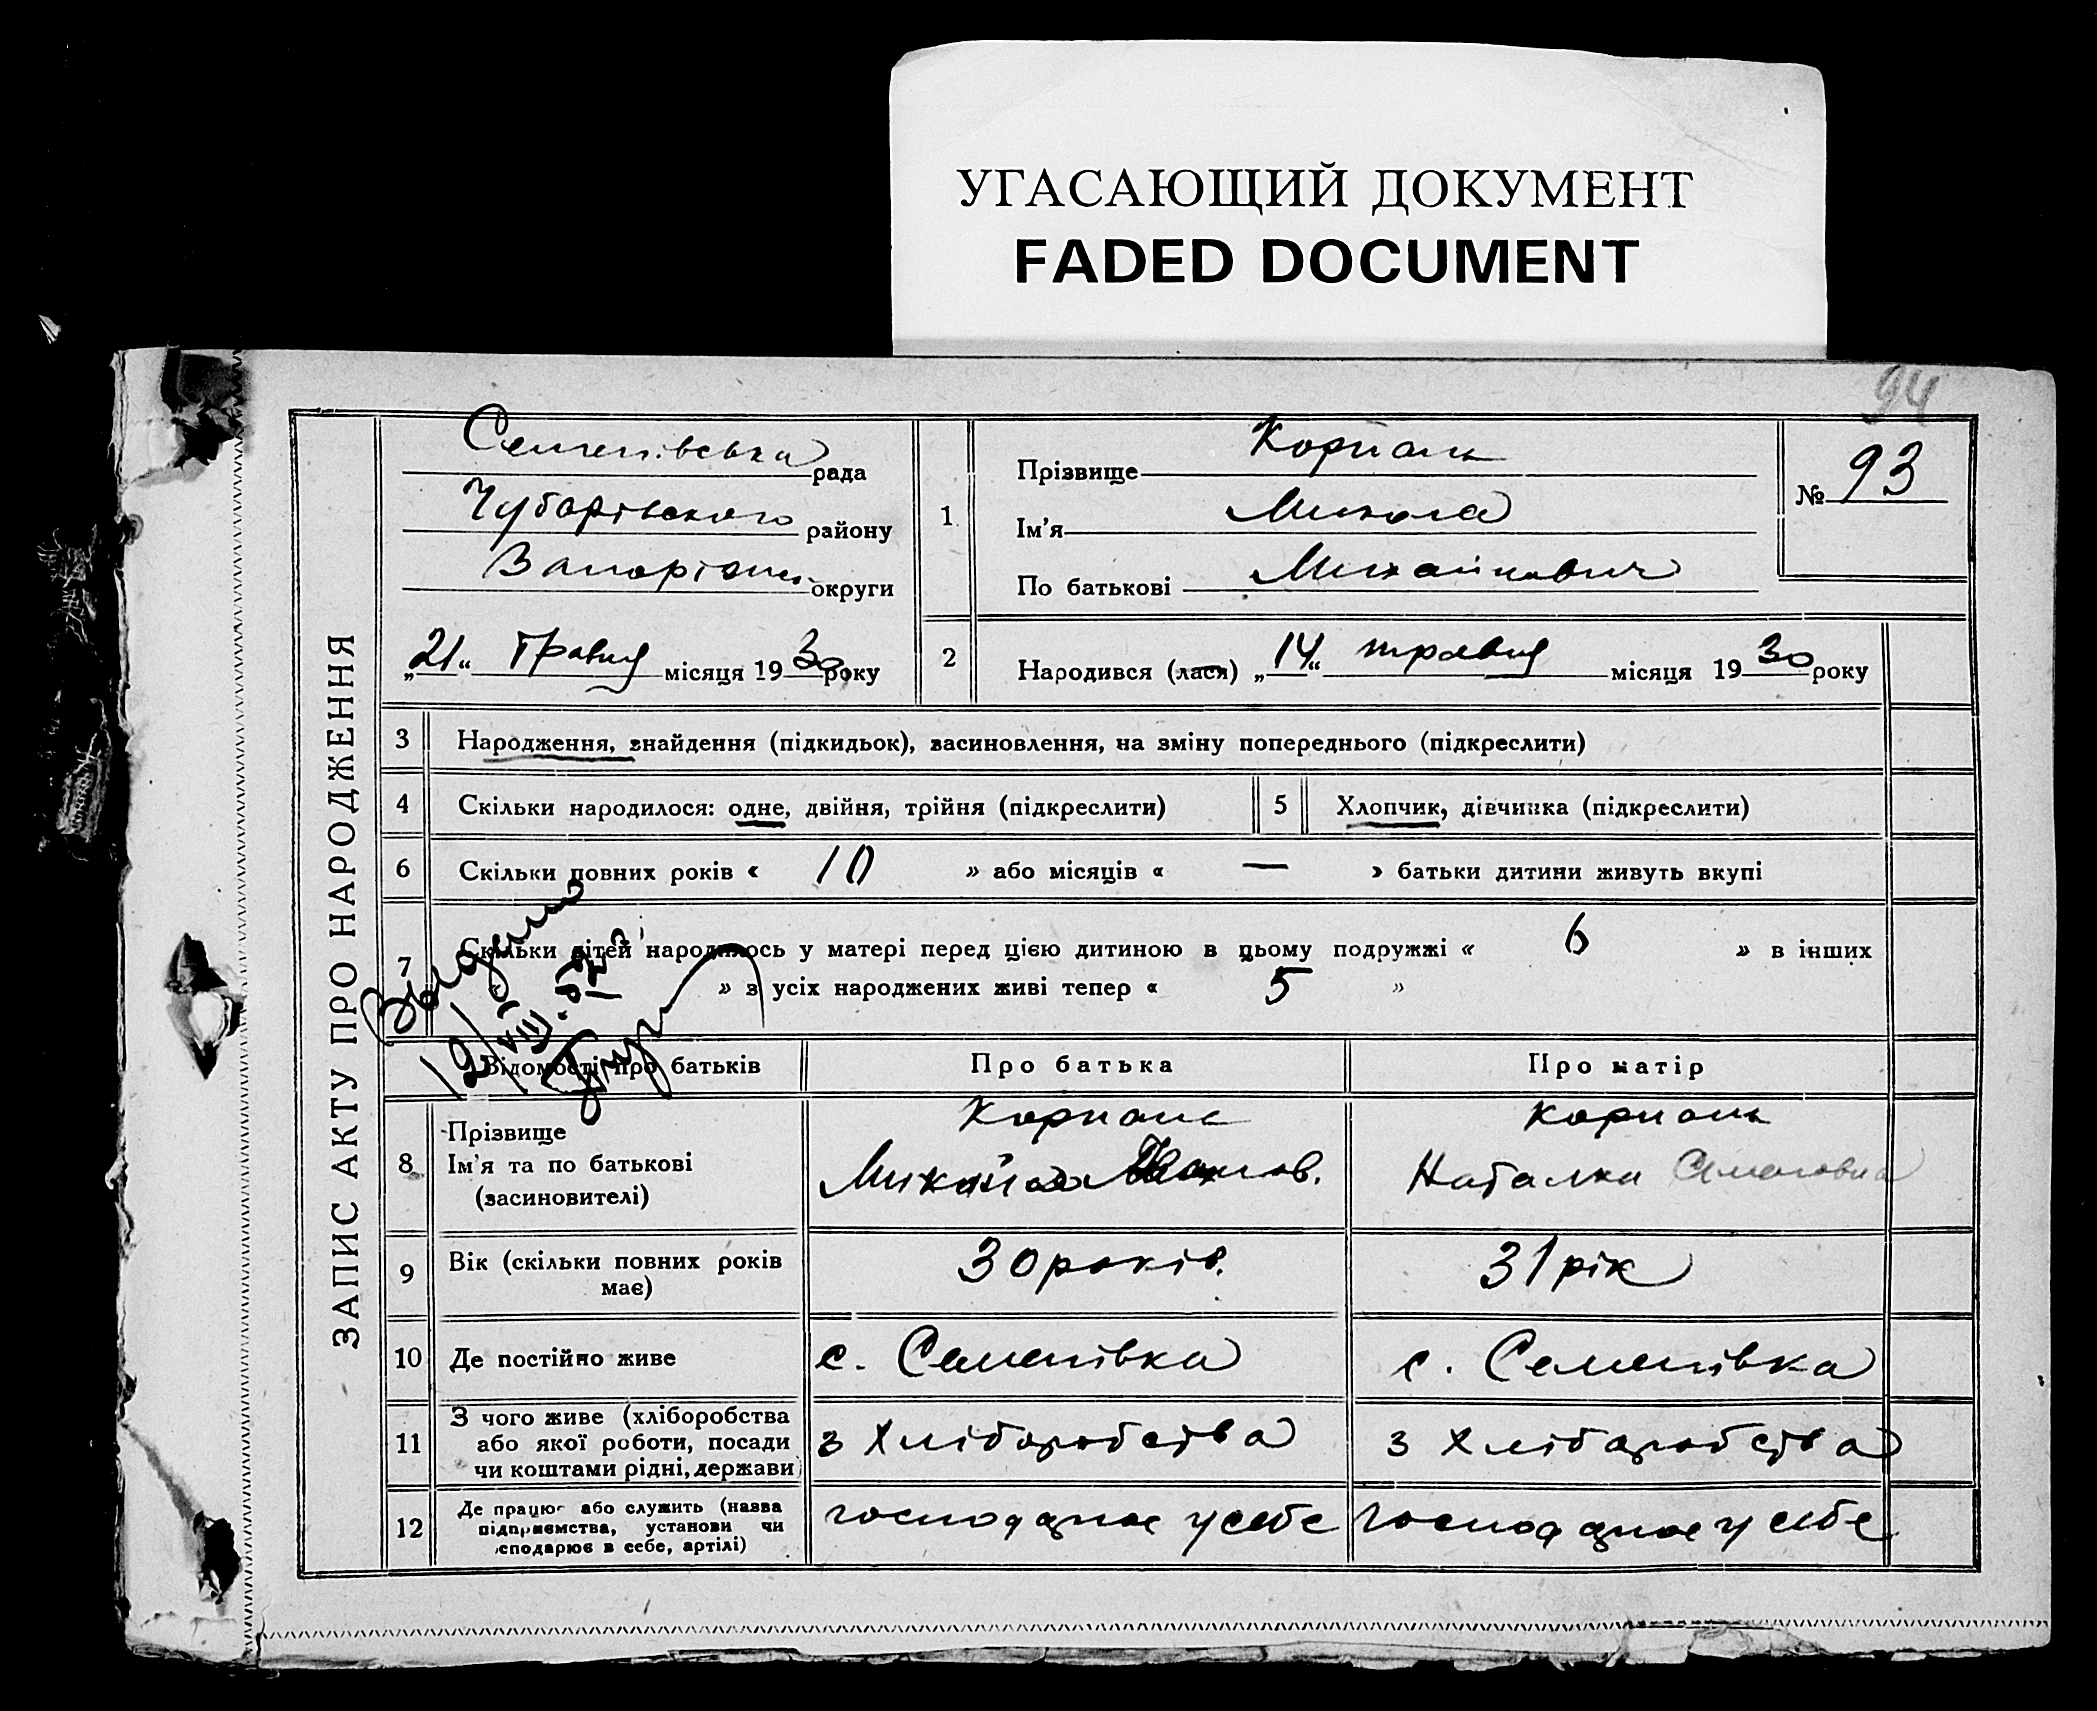 УГАСАЮЩИЙ ДОКУМЕНТ
FADED DOCUMENT
94
ЗАПИС АКТУ ПРО НАРОДЖЕННЯ
Семенівська рада
Чубарівського району
Запорізьк. округи
„21“ травня місяця 1930 року
1
Прізвище Корпань
Ім'я Микола
По батькові Михайлович
№ 93
2
Народився (лася) „14“ травня місяця 1930 року
3 Народження, знайдення (підкидьок), засиновлення, на зміну попереднього (підкреслити)
4 Скільки народилося: одне, двійня, трійня (підкреслити)
5 Хлопчик, дівчинка (підкреслити)
6 Скільки повних років « 10 » або місяців « — » батьки дитини живуть вкупі
7 Скільки дітей народилось у матері перед цією дитиною в цьому подружжі « 6 » в інших
« » з усіх народжених живі тепер « 5 »
Выдано
12/VIII
Відомості про батьків
Про батька
Про матір
8
Прізвище
Ім'я та по батькові
(засиновителі)
Корпань
Михайло Іванов.
Корпань
Наталка
9
Вік (скільки повних років
має)
30 років.
31 рік
10 Де постійно живе
с. Семенівка
с. Семенівка
11
З чого живе (хліборобства
або якої роботи, посади
чи коштами рідні, держави)
з хліборобства
з хліборобства
12
Де працює або служить (назва
підприємства, установи чи
сподарює в себе, артілі)
господарює у себе
господарює у себе